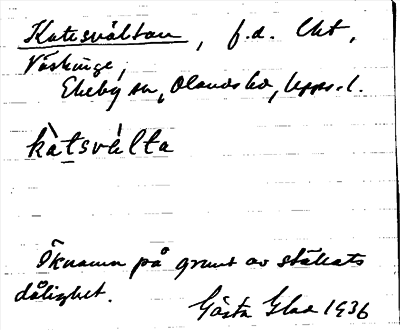 Katsvältan, f.d. lht,
Väskinge,
Ekeby sn, Olands hd, Upps. l.
kàtsvä̀lta
Öknamn på grund av ställets
dålighet.
Gösta Glad 1936